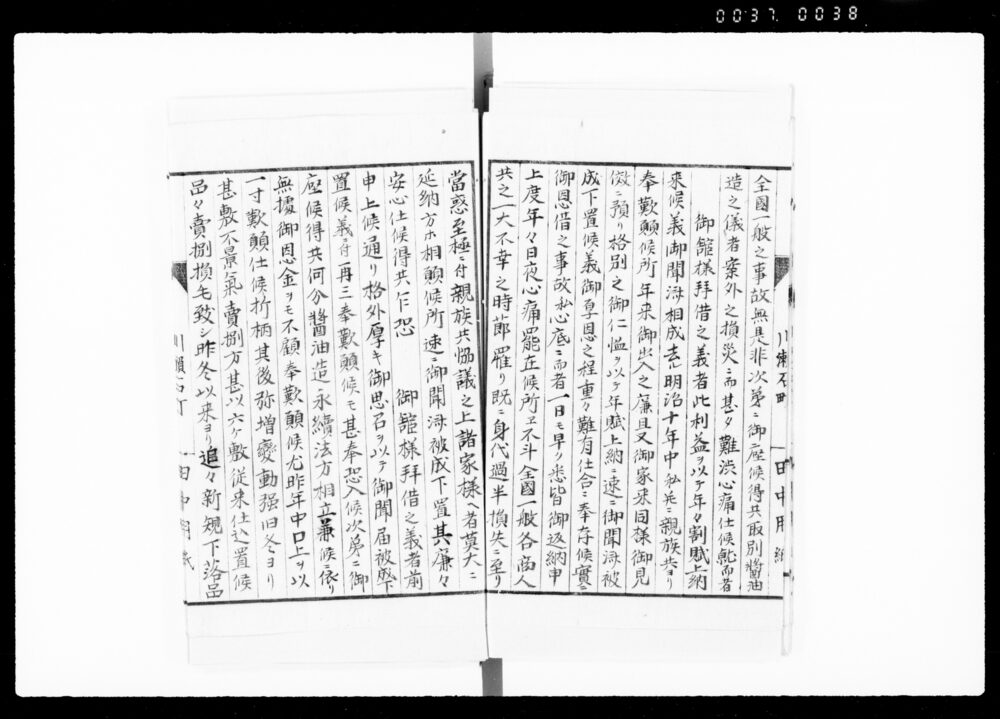 00:37. 0038
全國一般之事故無是非次第ニ御座候得共取別醬油
造之儀者案外之損災ニ而甚タ難渋心痛仕候就而者
御舘様拜借之義者此利益ヲ以テ年々割賦上納
来候義御聞済相成去ル明治十年中私共ニ親族共ヨリ
奉歎願候所年来御出入之廉且又御家来同様御見
倣ニ預リ格別之御仁恤ヲ以テ年賦上納ニ速ニ御聞済被
成下置候義御厚恩之程重々難有仕合ニ奉存候實ニ
御恩借之事故私心底ニ而者一日モ早ク悉皆御返納申
上度年々日夜心痛罷在候所豈不斗全國一般各商人
共之一大不幸之時節罹リ既ニ身代過半損失ニ至リ
田中用紙
當惑至極ニ付親族共協議之上諸家様ヘ者莫大ニ
延納方ホ相願候所速ニ御聞済被成下置其廉々
安心仕候得共乍恐　御舘様拜借之義者前
申上候通リ格外厚キ御思召ヲ以テ御聞届被成下
置候義ニ付再三奉歎願候モ甚奉恐入候次第ニ御
座候得共何分醬油造永續法方相立兼候ニ依リ
無據御恩金ヲモ不顧奉歎願候尤昨年中口上ヲ以
一寸歎願仕候折柄其後弥増變動强旧冬ヨリ
甚敷不景氣賣捌方甚以六ケ敷従来仕込置候
品々賣捌損毛致シ昨冬以来ヨリ追々新規下落品
川瀬石町
田中用紙